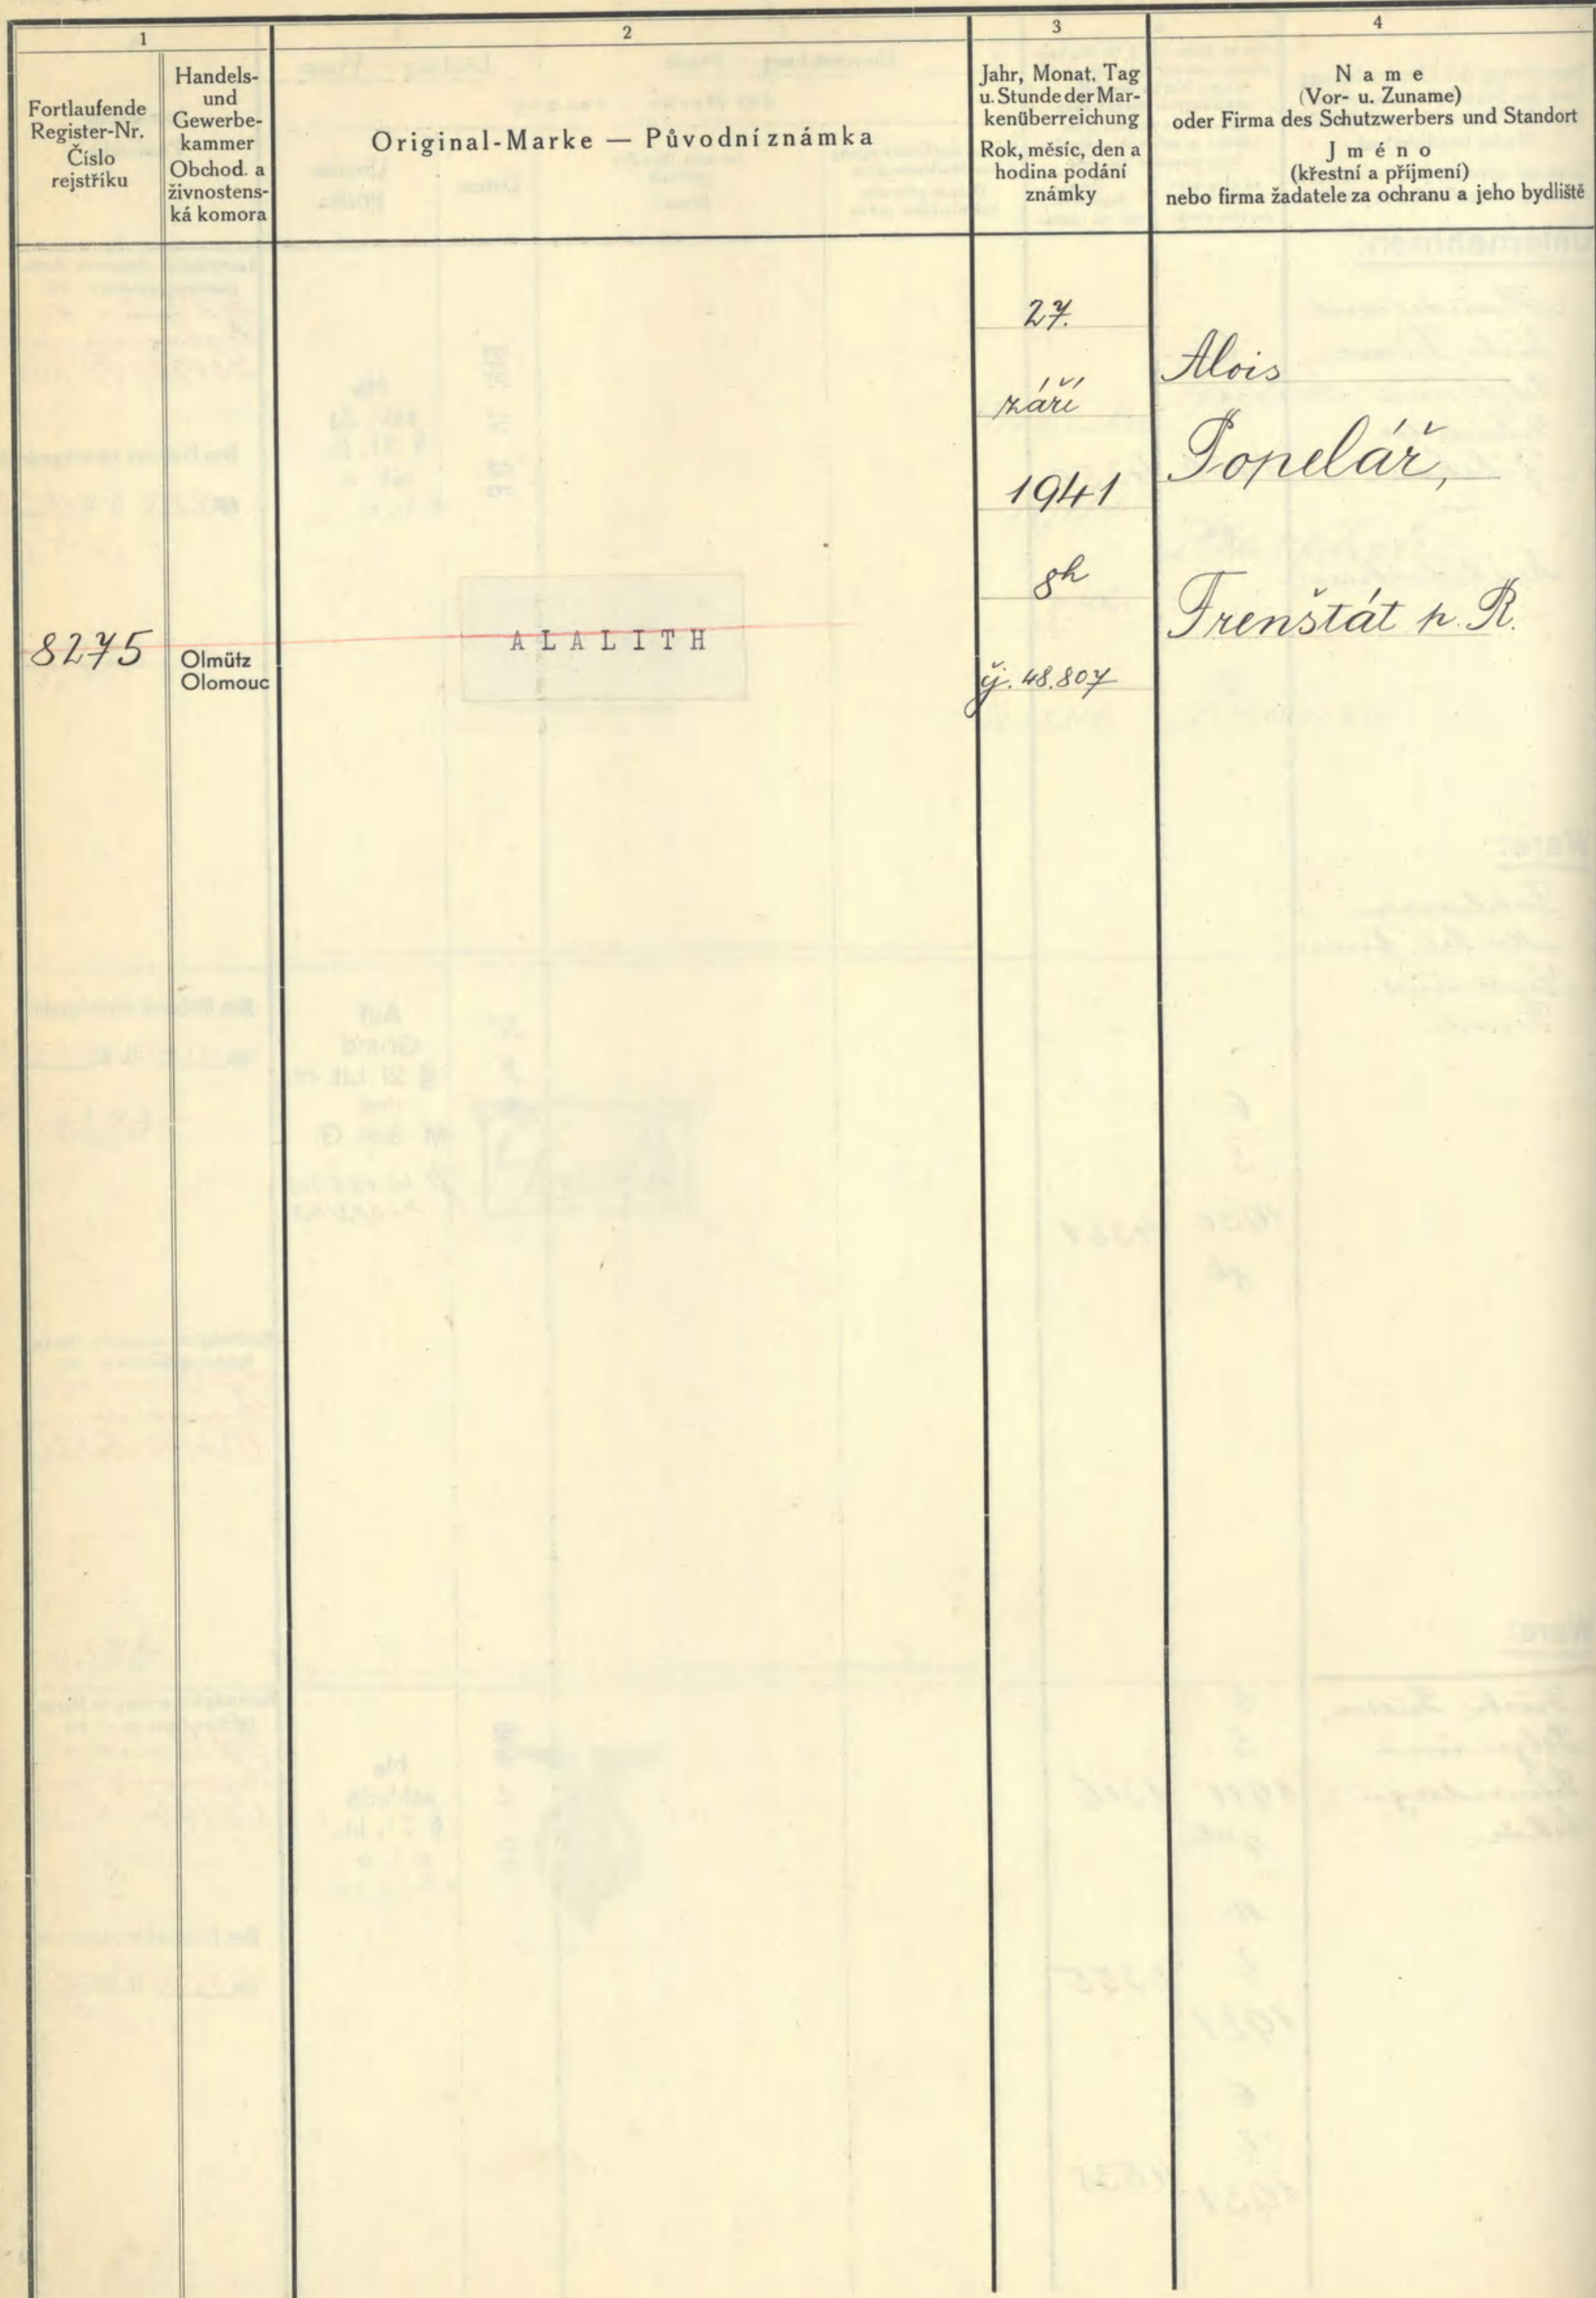 1
2
3
4
Fortlaufende
Register-Nr.
Číslo
rejstříku
Handels-
und
Gewerbe-
kammer
Obchod. a
živnostens-
ká komora
Original-Marke — Původní známka
Jahr, Monat, Tag
u. Stunde der Mar-
kenüberreichung
Rok, měsíc, den a
hodina podání
známky
Name
(Vor- u. Zuname)
oder Firma des Schutzwerbers und Standort
Jméno
(křestní a příjmení)
nebo firma žadatele za ochranu a jeho bydliště
8275
Olmütz
Olomouc
ALALITH
27.
září
1941
8h
čj. 48.807
Alois
Popelář,
Frenštát p. R.